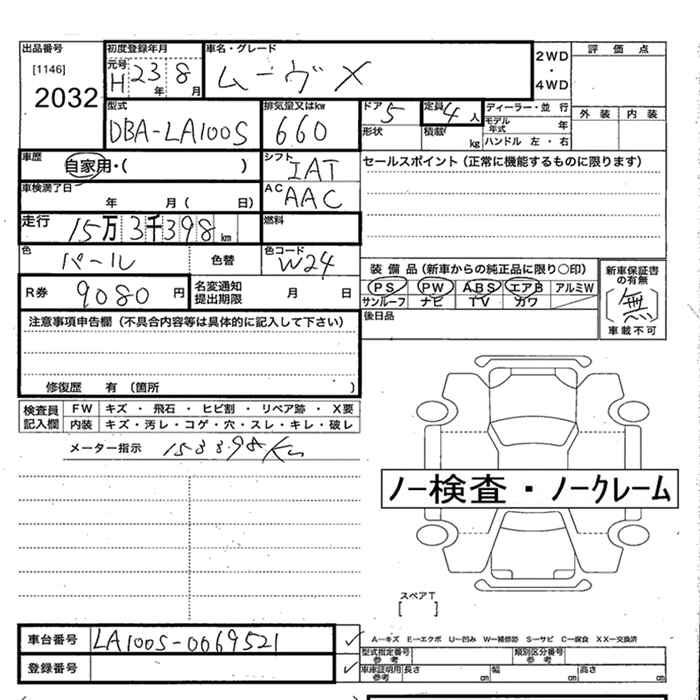 出品番号 初度登録年月 車名・グレード 2WD・4WD 評価点
[1146] 元号 H 23 年 8 月 ムーヴ X
2032 外装 内装
型式 排気量又はkw ドア 5 定員 4 人 ディーラー・並行
DBA-LA100S 660 形状 積載 kg モデル年式 年
ハンドル 左・右
車歴 自家用・( ) シフト IAT セールスポイント(正常に機能するものに限ります)
車検満了日 年 月( 日) AC AAC
走行 15万3千398km 燃料
色 パール 色替 色コード W24
装備品(新車からの純正品に限り○印) 新車保証書の有無
R券 9080円 名変通知提出期限 月 日 PS PW ABS エアB アルミW (無)
サンルーフ ナビ TV カワ 車載不可
注意事項申告欄(不具合内容等は具体的に記入して下さい) 後日品
修復歴 有(箇所 )
検査員記入欄 FW キズ・飛石・ヒビ割・リペア跡・X要
内装 キズ・汚レ・コゲ・穴・スレ・キレ・破レ
メーター指示 153398Km
ノー検査・ノークレーム
スペアT
[ ]
車台番号 LA100S-0069521 A―キズ E―エクボ U―凹み W―補修跡 S―サビ C―腐食 XX―交換済
型式指定番号 参考 類別区分番号 参考
登録番号 車庫証明用参考 長さ cm 幅 cm 高さ cm